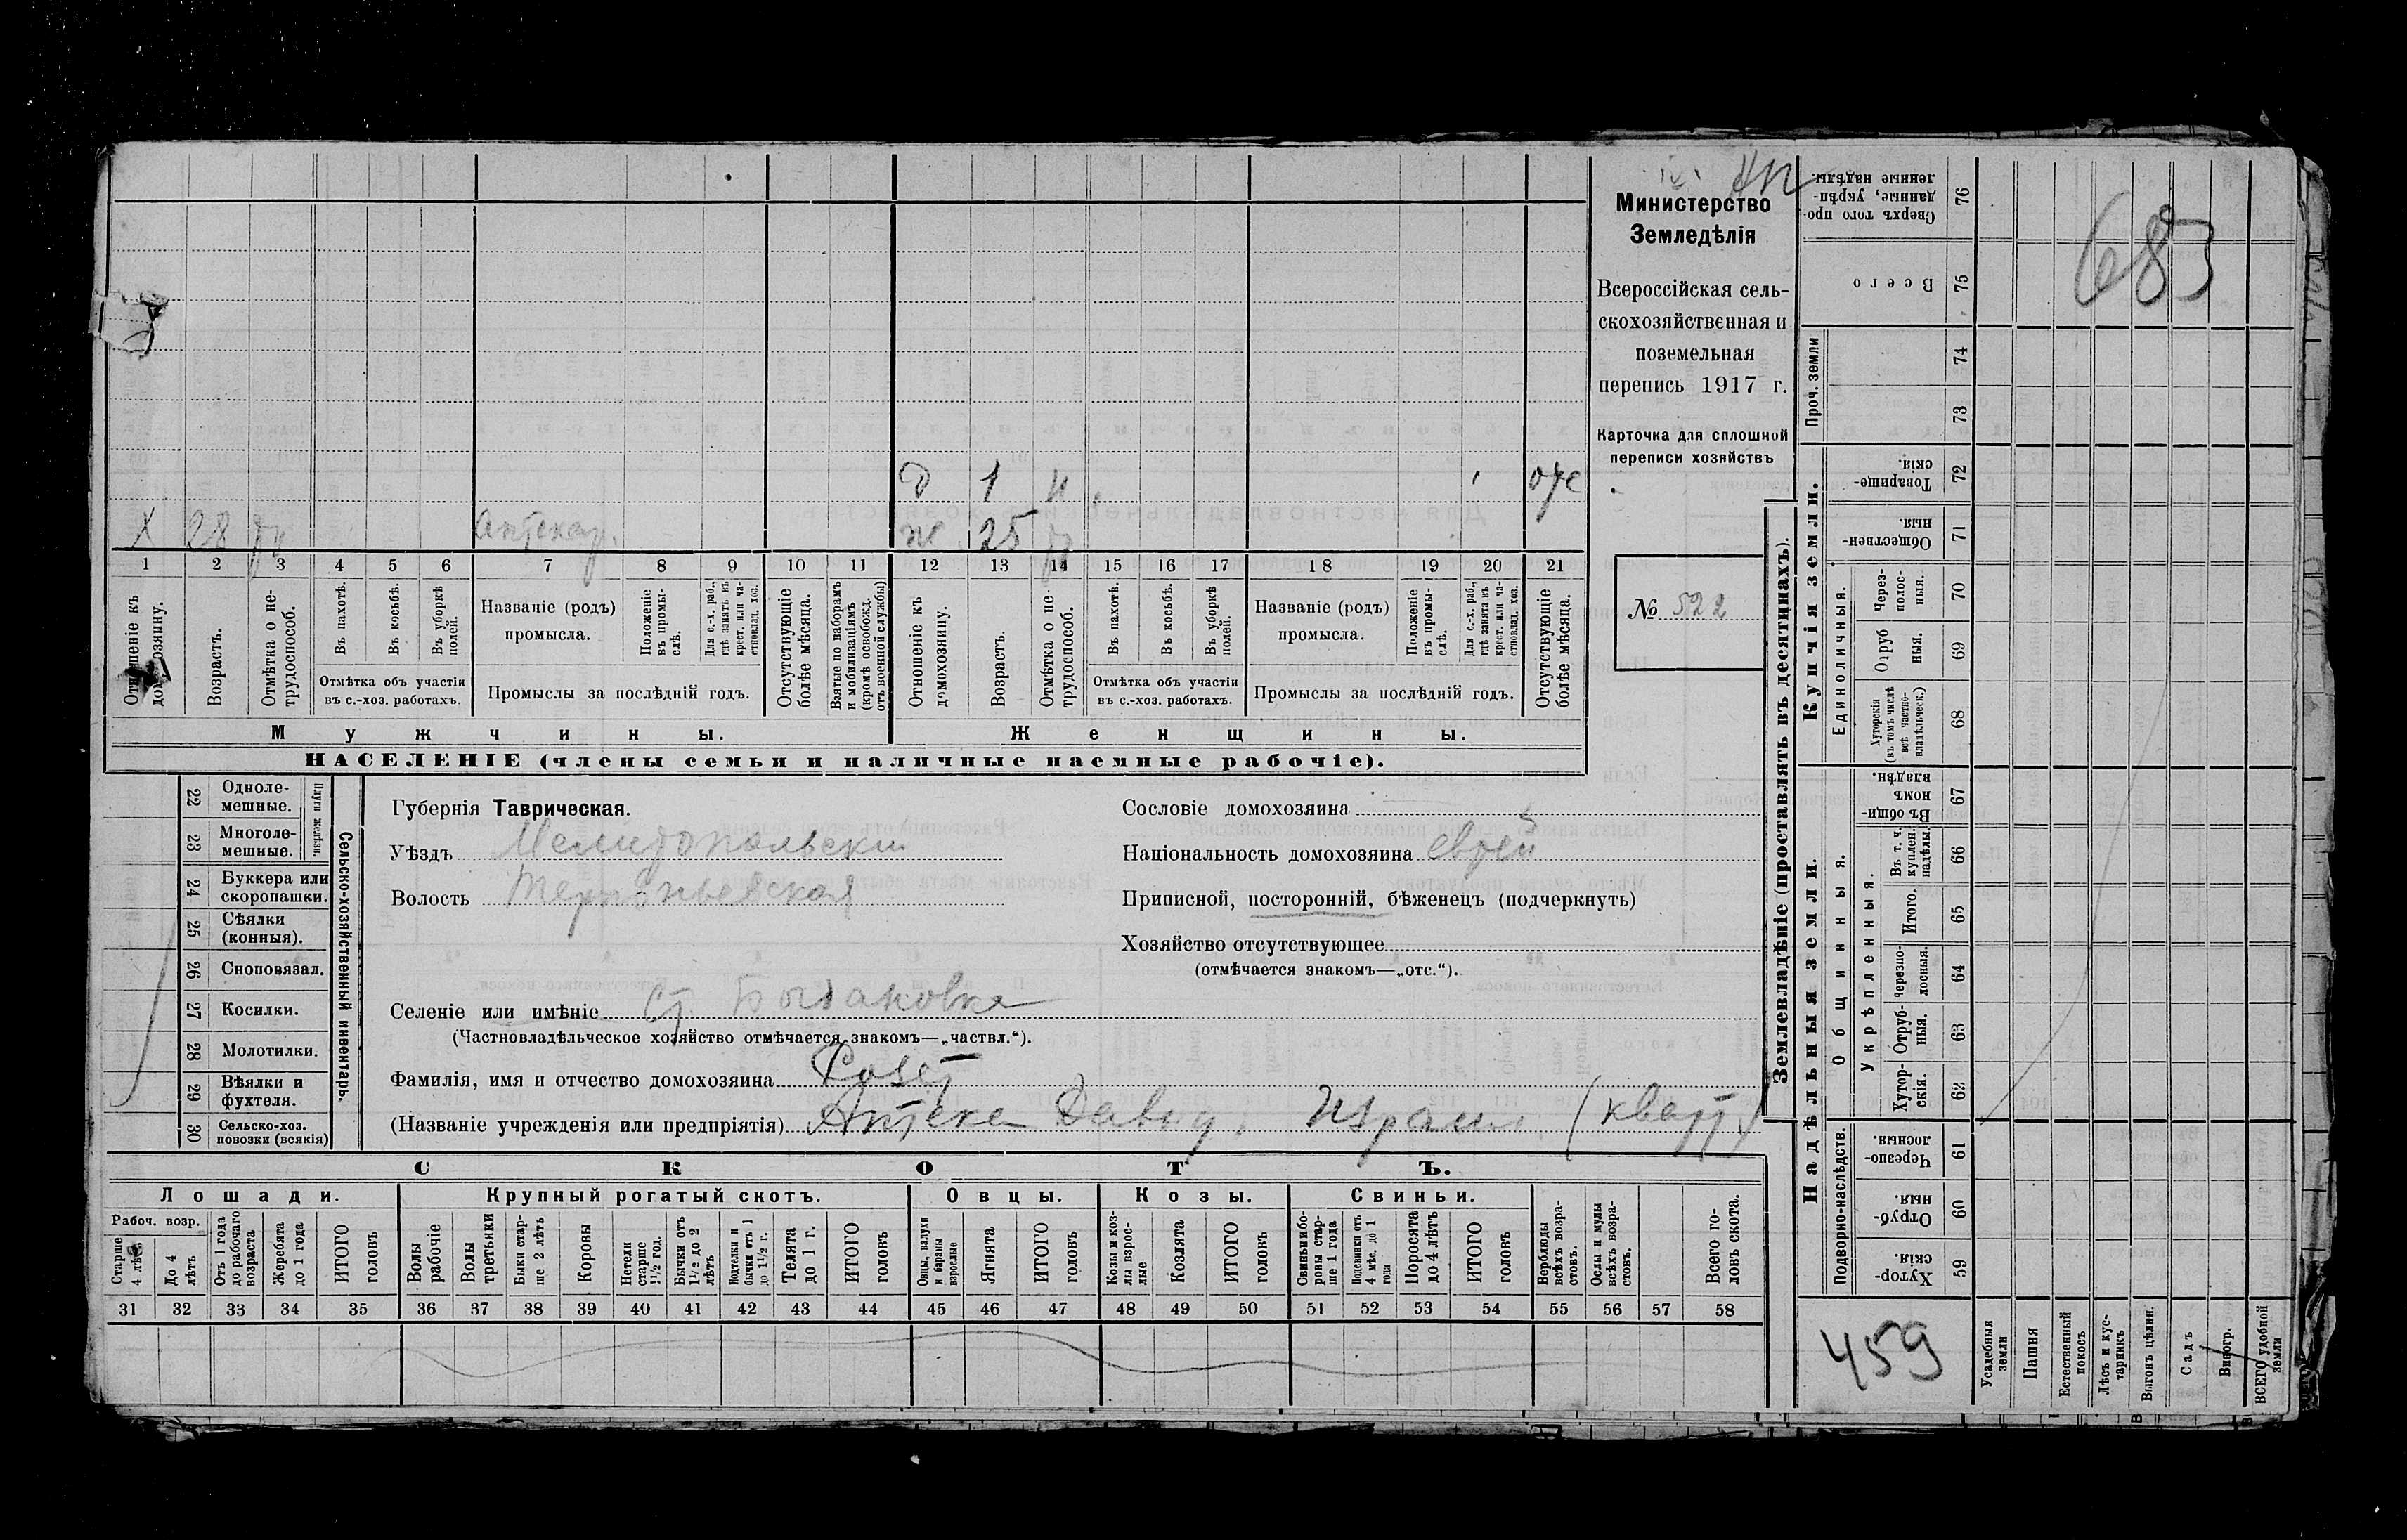 Министерство
Земледѣлія
Всероссійская сель-
скохозяйственная и
поземельная
перепись 1917 г.
Карточка для сплошной
переписи хозяйствъ
№ 522
683
д 1 н отс
х 28 Аптекар. ж 25
1 2 3 4 5 6 7 8 9 10 11 12 13 14 15 16 17 18 19 20 21
Отношеніе къ домохозяину.
Возрастъ.
Отмѣтка о не-трудоспособ.
Въ пахотѣ.
Въ косьбѣ.
Въ уборкѣ полей.
Отмѣтка объ участіи
въ с.-хоз. работахъ.
Названіе (родъ)
промысла.
Положеніе въ промы-слѣ.
Для с.-х. раб., гдѣ занятъ въ крест. или ча-стновлад. хоз.
Промыслы за послѣдній годъ.
Отсутствующіе болѣе мѣсяца.
Взятые по наборамъ и мобилизаціямъ (кромѣ освобожд. отъ военной службы)
Отношеніе къ домохозяину.
Возрастъ.
Отмѣтка о не-трудоспособ.
Въ пахотѣ.
Въ косьбѣ.
Въ уборкѣ полей.
Отмѣтка объ участіи
въ с.-хоз. работахъ.
Названіе (родъ)
промысла.
Положеніе въ промы-слѣ.
Для с.-х. раб., гдѣ занята въ крест. или ча-стновлад. хоз.
Промыслы за послѣдній годъ.
Отсутствующіе болѣе мѣсяца.
Мужчины. Женщины.
НАСЕЛЕНІЕ (члены семьи и наличные наемные рабочіе).
Сельско-хозяйственный инвентарь.
Плуги желѣзн.
22 Одноле-мешные.
23 Многоле-мешные.
24 Буккера или скоропашки.
25 Сѣялки (конныя).
26 Сноповязал.
27 Косилки.
28 Молотилки.
29 Вѣялки и фухтеля.
30 Сельско-хоз. повозки (всякія)
Губернія Таврическая.
Уѣздъ Мелитопольскій
Волость Терпѣньевская
Селеніе или имѣніе ст.
(Частновладѣльческое хозяйство отмѣчается знакомъ—„частвл.“).
Фамилія, имя и отчество домохозяина
(Названіе учрежденія или предпріятія) Аптека Давид. Израил. (кварт.)
Сословіе домохозяина
Національность домохозяина еврей
Приписной, посторонній, бѣженецъ (подчеркнуть)
Хозяйство отсутствующее
(отмѣчается знакомъ—„отс.“).
СКОТЪ.
Лошади. Крупный рогатый скотъ. Овцы. Козы. Свиньи.
Рабоч. возр.
Старше 4 лѣтъ
До 4 лѣтъ
Отъ 1 года до рабочаго возраста
Жеребята до 1 года
ИТОГО головъ
Волы рабочіе
Волы третьяки
Быки стар-ше 2 лѣтъ
Коровы
Нетели старше 1½ год.
Бычки отъ 1½ до 2 лѣтъ
Подтелки и бычки отъ 1 до 1½ г.
Телята до 1 г.
ИТОГО головъ
Овцы, валухи и бараны взрослые
Ягнята
ИТОГО головъ
Козы и коз-лы взрос-лые
Козлята
ИТОГО головъ
Свиньи и бо-ровы стар-ше 1 года
Подсвинки отъ 4 мѣс. до 1 года
Поросята до 4 лѣтъ
ИТОГО головъ
Верблюды всѣхъ возра-стовъ.
Ослы и мулы всѣхъ возра-стовъ.
Всего го-ловъ скота.
31 32 33 34 35 36 37 38 39 40 41 42 43 44 45 46 47 48 49 50 51 52 53 54 55 56 57 58
Землевладѣніе (проставлять въ десятинахъ).
Купчія земли.
Надѣльныя земли.
Сверхъ того про-данные, укрѣп-ленные надѣлы. 76
Всего 75
Проч. земли
74
73
Товарище-скія. 72
Обществен-ныя. 71
Единоличныя.
Через-полос-ныя. 70
Отруб ныя. 69
Хуторскія (въ томъ числѣ всѣ частно-владѣльческ.) 68
Общинныя.
Въ общи-номъ владѣн. 67
Укрѣпленныя.
Въ т. ч. куплен. надѣлы. 66
Итого. 65
Черезпо-лосныя. 64
Отруб-ныя. 63
Хутор-скія. 62
Подворно-наслѣдств.
Черезпо-лосныя. 61
Отруб-ныя. 60
Хутор-скія. 59
459
Усадебныя земли
Пашня
Естественный покосъ
Лѣсъ и кус-тарникъ
Выгонъ цѣлин.
Садъ
Виногр.
ВСЕГО удобной земли